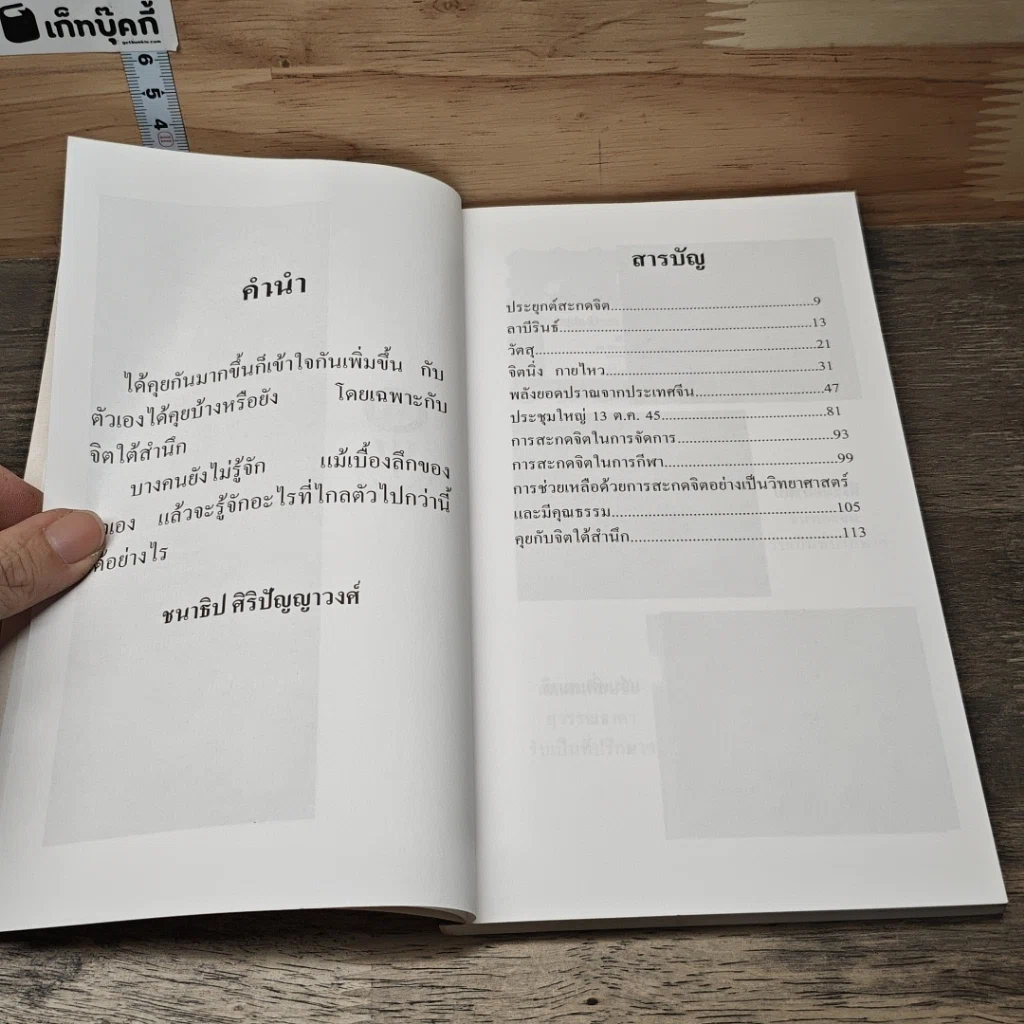 เก็ทบุ๊คกี้
getbookie.com
6
5
4
คำนำ
ได้คุยกันมากขึ้นก็เข้าใจกันเพิ่มขึ้น กับ
ตัวเองได้คุยบ้างหรือยัง โดยเฉพาะกับ
จิตใต้สำนึก
บางคนยังไม่รู้จัก แม้เบื้องลึกของ
แล้วจะรู้จักอะไรที่ไกลตัวไปกว่านี้
ได้อย่างไร
ชนาธิป ศิริปัญญาวงศ์
สารบัญ
ประยุกต์สะกดจิต.....................................................9
ลาบีรินธ์.................................................................13
วัตสุ.......................................................................21
จิตนิ่ง กายไหว.......................................................31
พลังยอดปราณจากประเทศจีน.................................47
ประชุมใหญ่ 13 ต.ค. 45..........................................81
การสะกดจิตในการจัดการ.......................................93
การสะกดจิตในการกีฬา...........................................99
การช่วยเหลือด้วยการสะกดจิตอย่างเป็นวิทยาศาสตร์
และมีคุณธรรม.........................................................105
คุยกับจิตใต้สำนึก.....................................................113